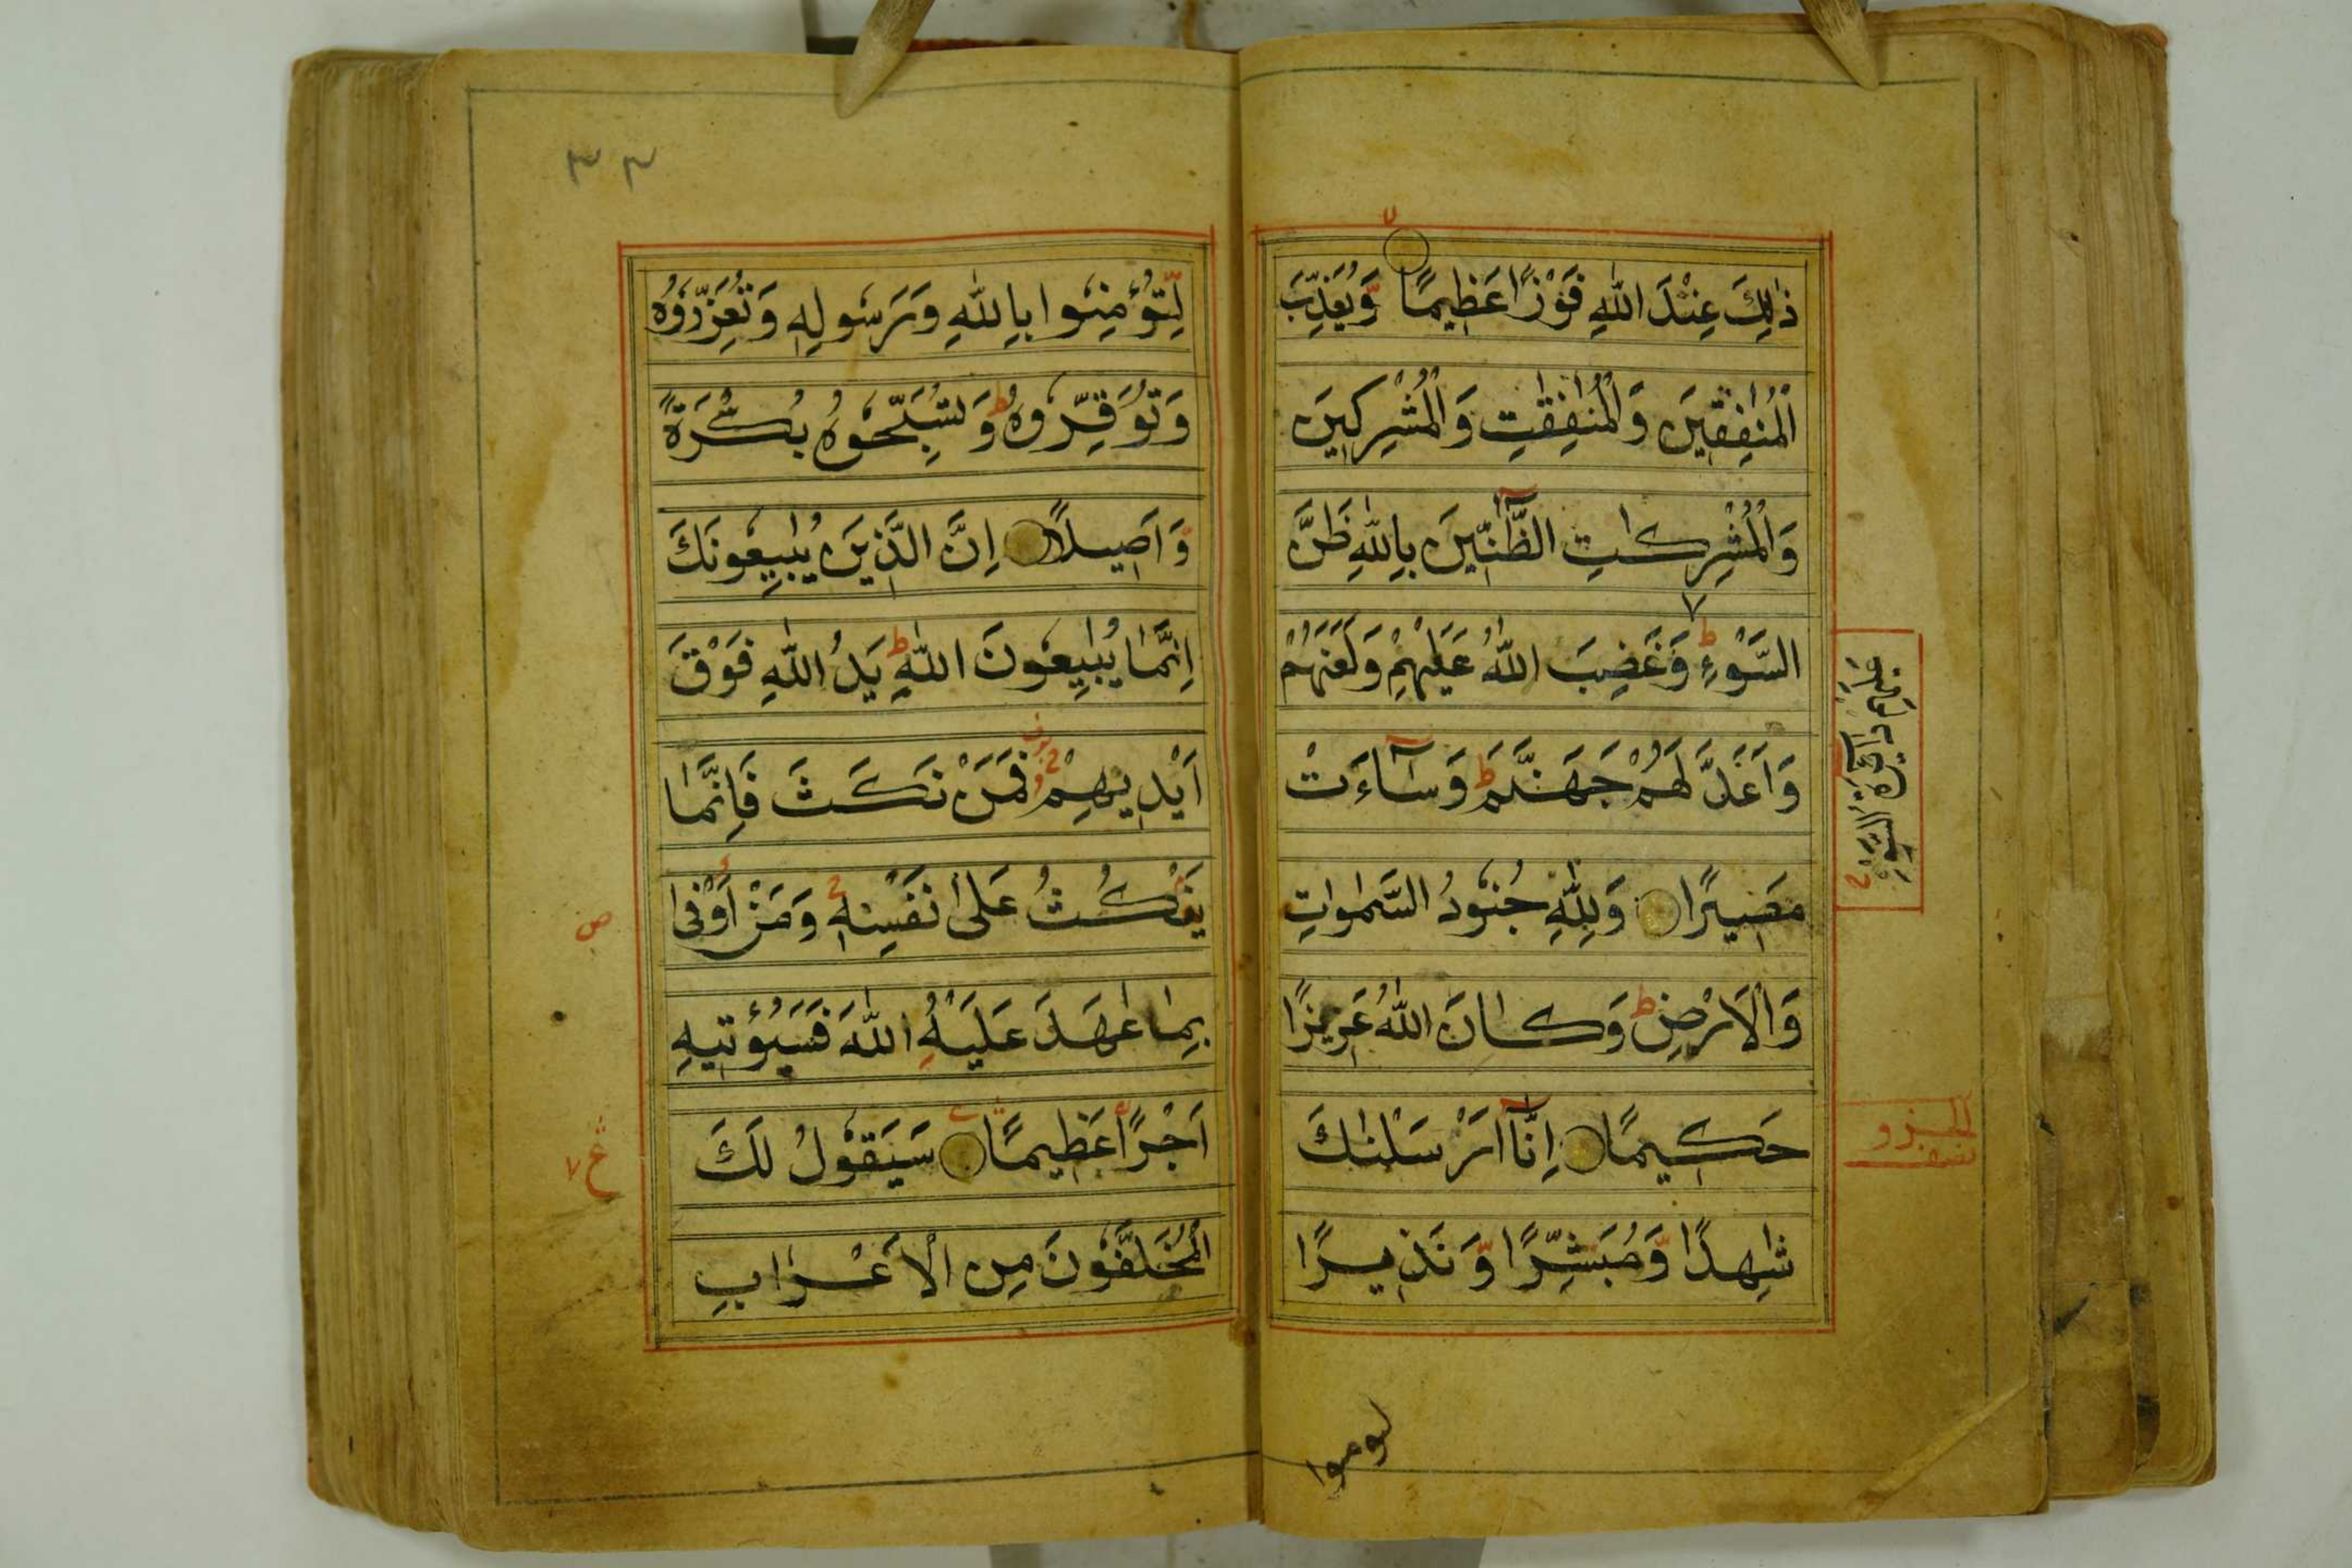 ذٰلِكَ عِنْدَ اللّٰهِ فَوْزًا عَظِيمًا وَّيُعَذِّبَ
الْمُنٰفِقِيْنَ وَالْمُنٰفِقٰتِ وَالْمُشْرِكِيْنَ
وَالْمُشْرِكٰتِ الظَّآنِّيْنَ بِاللّٰهِ ظَنَّ
السَّوْءِ ط وَغَضِبَ اللّٰهُ عَلَيْهِمْ وَلَعَنَهُمْ
عَلَيْهِمْ دَآئِرَةُ السَّوْءِ
وَاَعَدَّ لَهُمْ جَهَنَّمَ ط وَسَآءَتْ
مَصِيْرًا وَلِلّٰهِ جُنُوْدُ السَّمٰوٰتِ
وَالْاَرْضِ ط وَكَانَ اللّٰهُ عَزِيْزًا
حَكِيْمًا اِنَّآ اَرْسَلْنٰكَ
شٰهِدًا وَّمُبَشِّرًا وَّنَذِيْرًا
لتومنوا
٣٣
لِّتُؤْمِنُوْا بِاللّٰهِ وَرَسُوْلِهٖ وَتُعَزِّرُوْهُ
وَتُوَقِّرُوْهُ ط وَتُسَبِّحُوْهُ بُكْرَةً
وَّاَصِيْلًا اِنَّ الَّذِيْنَ يُبَايِعُوْنَكَ
اِنَّمَا يُبَايِعُوْنَ اللّٰهَ ط يَدُ اللّٰهِ فَوْقَ
اَيْدِيْهِمْ فَمَنْ نَكَثَ فَاِنَّمَا
يَنْكُثُ عَلٰى نَفْسِهٖ وَمَنْ اَوْفٰى
بِمَا عٰهَدَ عَلَيْهُ اللّٰهَ فَسَيُؤْتِيْهِ
اَجْرًا عَظِيْمًا سَيَقُوْلُ لَكَ
ع
الْمُخَلَّفُوْنَ مِنَ الْاَعْرَابِ